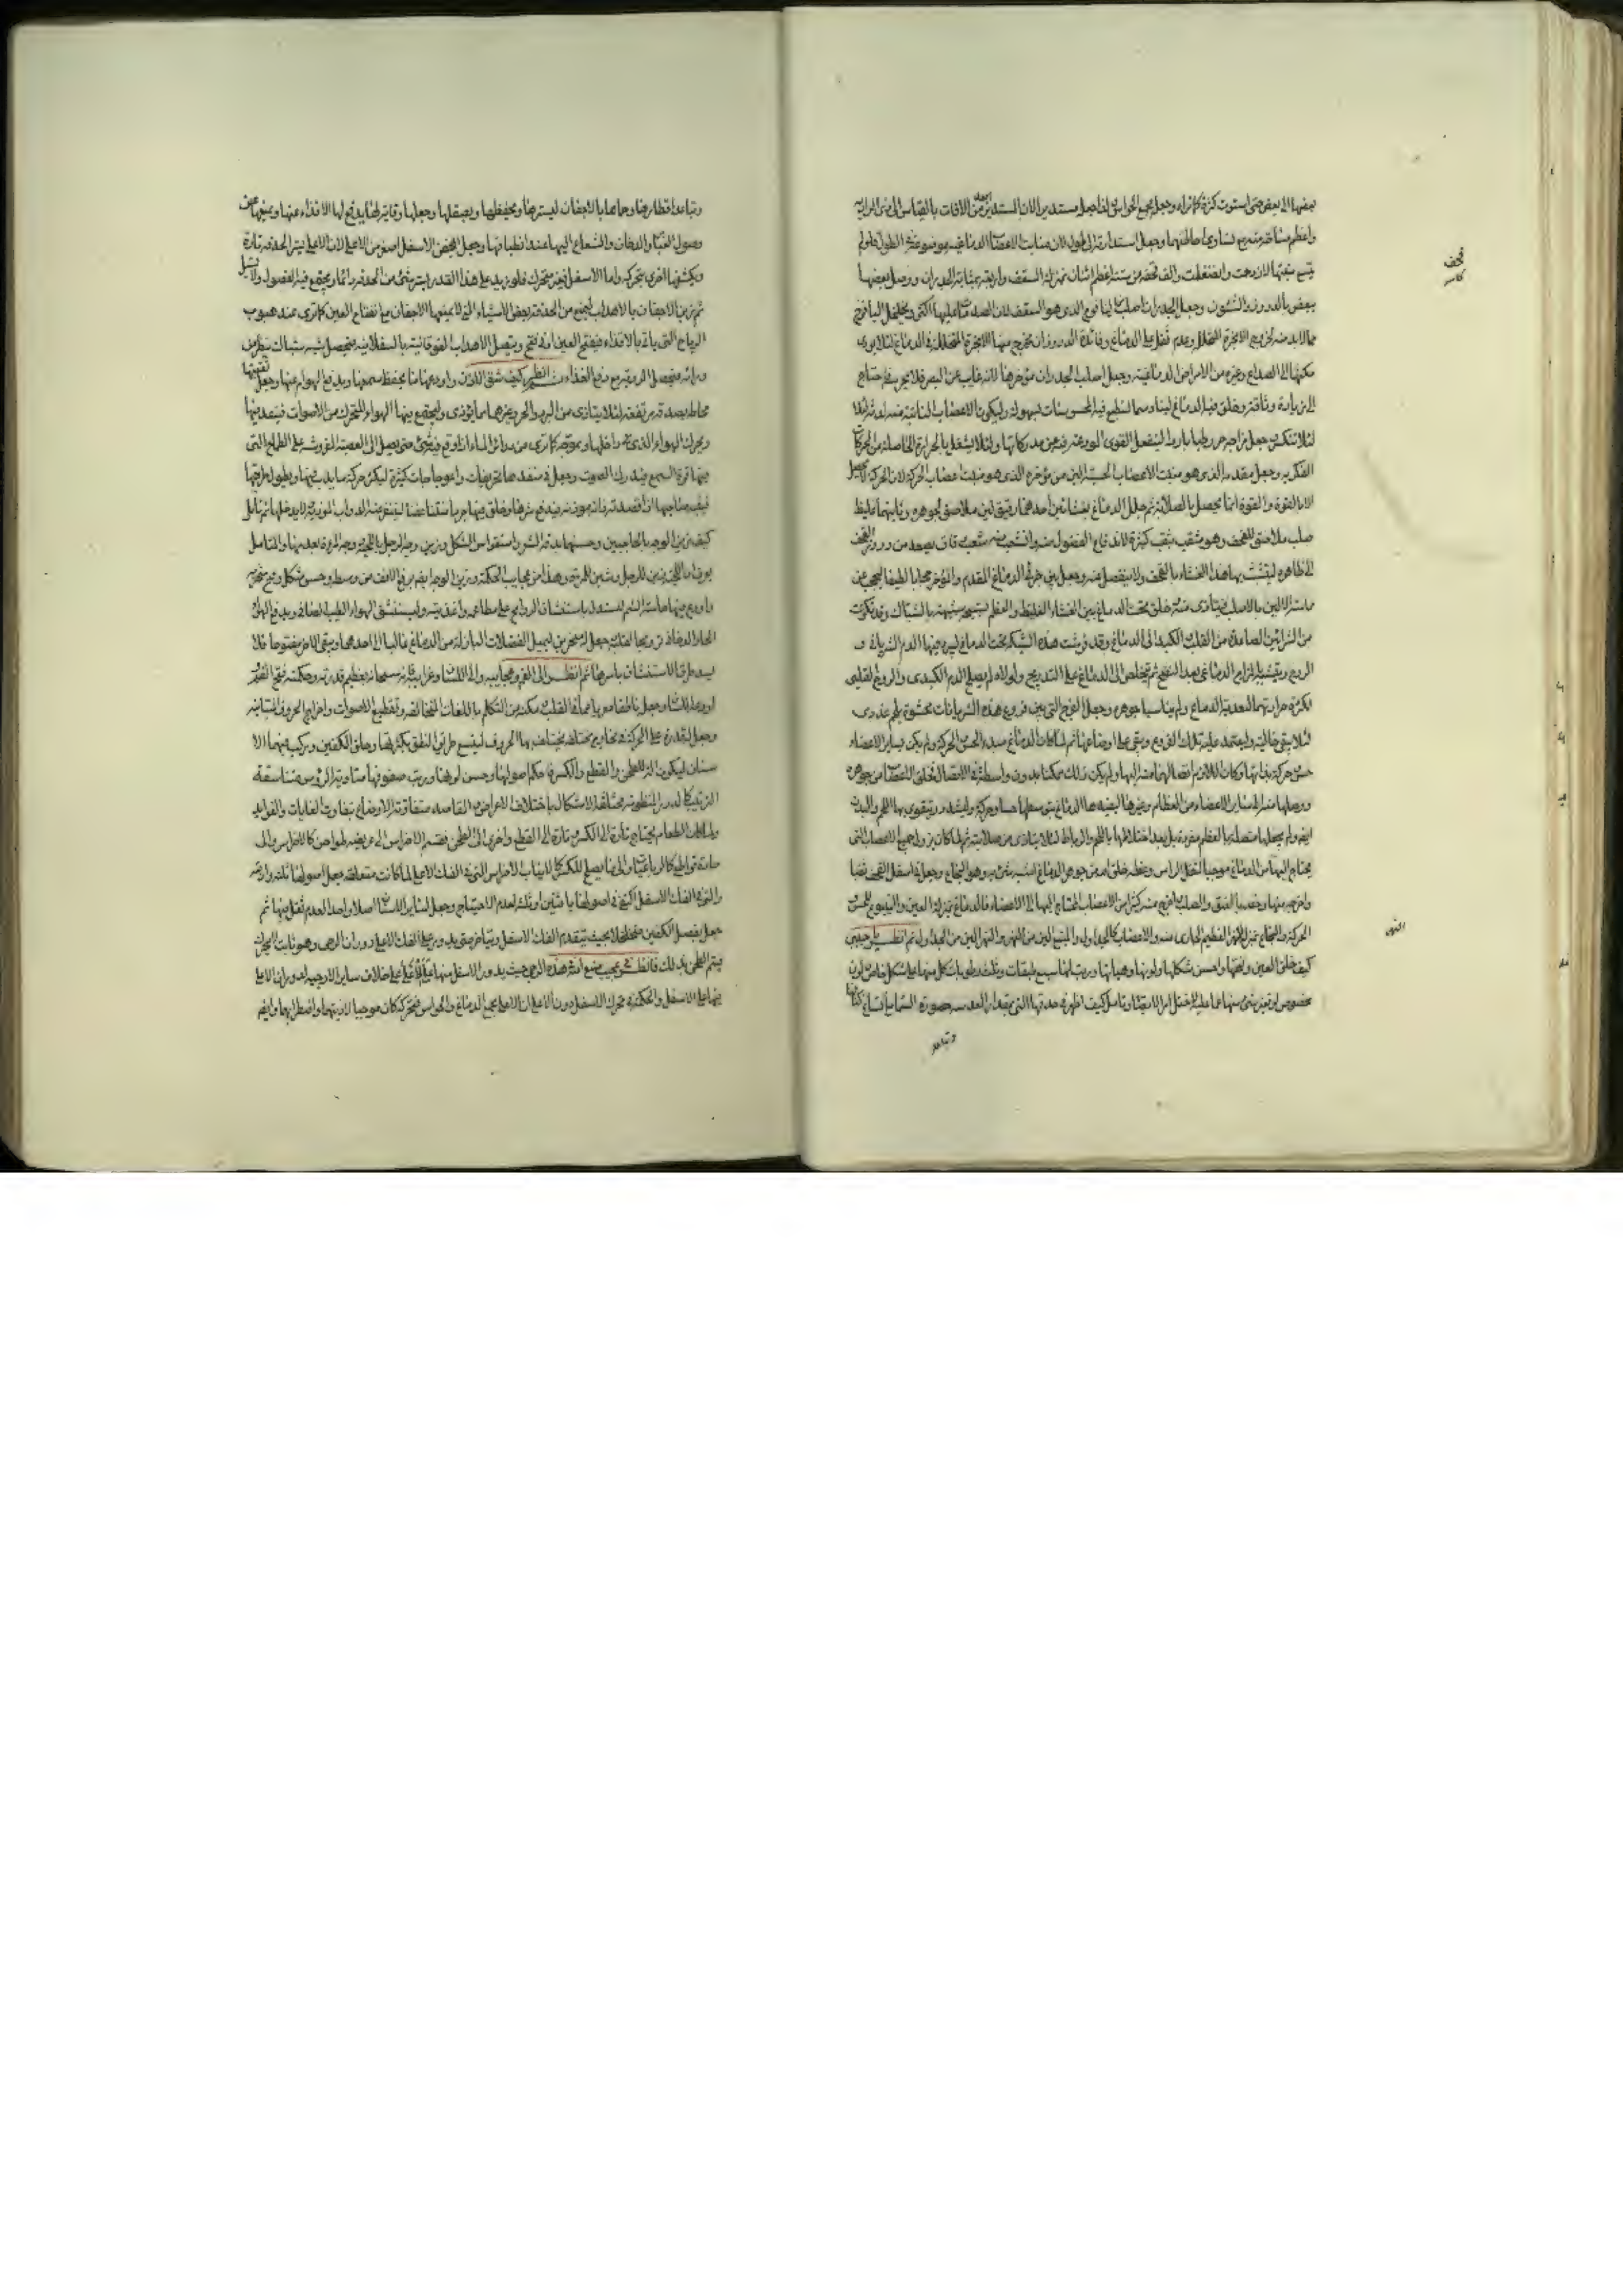 بعضها الى بعض حتى استوت كرة كما تراه وجعل مجمع الحواس وانما جعل مستديرا لان المستدير ابعد من الافات بالقياس الى ذى الزاوية
قحف
كاسه
واعظم مساحة منه مع تساوى احاطتهما وجعل استدارته الى طول لان منابت الاعصاب الدماغية موضوعة فى الطول فلو لم
يتسع منبتها لازدحمت وانضغطت والف قحفه من ستة اعظم اثنان بمنزلة السقف واربعة بمثابة الجدران ووصل بعضها
ببعض بالدروز والشئون وجعل الجدران اصلب من اليافوخ الذى هو السقف لان الصدمات عليها اكثر وتخلخل اليافوخ
مما لابد منه لخروج الابخرة المتحللة وعدم ثقله على الدماغ وفائدة الدروز ان تخرج منها الابخرة المتحللة فى الدماغ لئلا يودى
مكثها الى الصداع وغيره من الامراض الدماغية وجعل اصلب الجدران مؤخرها لانه غايب عن البصر فلا يحرسه فاحتاج
الى زيادة وثاقة وخلق فيه الدماغ لينا دسما لتنطبع فيه المحسوسات بسهولة وليكون الاعصاب النابتة منه لدنة لئلا
لئلا تنكسر وجعل مزاجه رطبا باردا لينفعل القوى المودعة فيه عن مدركاتها ولئلا يشتعل بالحرارة الحاصلة من الحركات
الفكرية وجعل مقدمه الذى هو منبت الاعصاب الحسية الين من مؤخره الذى هو منبت اعصاب الحركة لان الحركة لا تحصل
الا بالقوة والقوة انما تحصل بالصلابة ثم جلل الدماغ بغشائين احدهما رقيق لين ملاصق لجوهره وثانيهما غليظ
صلب ملاصق للقحف وهو مثقب بثقب كثيرة لاندفاع الفضول منه وانشعب منه شعب دقاق يصعد من دروز القحف
الى ظاهره ليتشبث بها هذا الغشاء بالقحف ولا ينفصل منه وجعل بين جزئى الدماغ المقدم والمؤخر حجابا لطيفا ليحجب عن
مماسة الالين بالاصلب فيتاذى منه ثم خلق تحت الدماغ بين الغشاء الغليظ والعظم نسيجة شبيهة بالشباك وقد تكونت
من الشرائين الصاعدة من القلب والكبد الى الدماغ وقد فرشت هذه الشبكة تحت الدماغ ليبرد فيها الدم الشريانى و
الروح ويتشبه بالمزاج الدماغى بعد النضج ثم يتخلص الى الدماغ على التدريج ولولاه لم يصلح الدم الكبدى والروح القلبى
لكثرة حرارتهما لتغذية الدماغ ولم يناسبا جوهره وجعل الفرج التى بين فروع هذه الشريانات محشوة بلحم غددى
لئلا يبقى خالية وليعتمد عليه تلك الفروع ويبقى على اوضاعها ثم لما كان الدماغ مبدء الحس والحركة ولم يكن لساير الاعضاء
حس وحركة بذاتها وكان اللازم اتصالهما منه اليها ولم يكن ذلك ممكنا بدون واسطة فى الاتصال فخلق الاعصاب من جوهره
ووصلها منه الى ساير الاعضاء من العظام وغيرها ليفيدها الدماغ بتوسطها حسا وحركة وليشد ويتقوى بها اللحم والبدن
ايضا ولم يجعلها متصلة بالعظم مفردة بل بعد اختلاطها باللحم والرباط لئلا يتاذى من صلابته ثم لما كان بروز جميع الاعصاب التى
يحتاج اليها من الدماغ موجبا لثقل الراس وعظمه خلق له من جوهر الدماغ اشبه شئ به وهو النخاع وجعل فى اسفل القحف ثقبا
واخرجه منها وخصه بالعنق والصلب واخرج منه كثيرا من الاعصاب المحتاج اليها الى الاعضاء فالدماغ بمنزلة العين والينبوع للحس
النهر
والحركة والنخاع بمنزلة النهر العظيم الجارى منه والاعصاب كالجداول والمنبع الين من النهر والنهر الين من الجداول ثم انظر يا حبيبى
كيف خلق العين وفتحها واحسن شكلها ولونها وهيئاتها ورتب لها سبع طبقات وثلث رطوبات لكل منها على شكل خاص ولون
مخصوص لو تغير شئ منها عما عليه لاختل امر الابصار وتامل كيف اظهر فى حدقتها التى بمقدار العدسة صورة السماء مع اتساع اكنافها
وتباعد
وتباعد اقطارها وحماها بالاجفان ليسترها ويحفظها ويصقلها وجعلها وقاية لها يدفع لها الاقذاء عنها ويمنعها عن
وصول الغبار والدخان والشعاع اليها عند انطباقها وجعل الجفن الاسفل اصغر من الاعلى لان الاعلى يستر الحدقة تارة
ويكشفها اخرى بتحركه واما الاسفل فغير متحرك فلو زيد على هذا القدر لستر شئ من الحدقة دائما ويجتمع فيه الفضول ولا تسيل
ثم زين الاجفان بالاهداب ليمنع من الحدقة بعض الاشياء التى لا يمنعها الاجفان مع انفتاح العين كما ترى عند هبوب
الرياح التى ياتى بالاقذاء فيفتح العين ادنى فتح ويتصل الاهداب الفوقانية بالسفلانية فيحصل شبه شباك ينظر من
ورائه فيحصل الرؤية مع دفع القذاء ثم انظر كيف شق الاذن واودعها ما يحفظ سمعها ويدفع الهوام عنها وجعل ثقبها
محاطة بصدفة مرتفعة لئلا يتاذى من البرد والحر وغيرهما مما يؤذى وليجتمع فيها الهواء المتحرك من الاصوات فينفذ فيها
ويحرك الهواء الذى فى داخلها ويموجه كما ترى من دوائر الماء اذا وقع فيه شئ حتى يصل الى العصبة المفروشة على الطماخ التى
فيها قوة السمع فيدرك الصوت وجعل فى منفذها تحريفات واعوجاجات كثيرة ليكثر حركة ما يدب فيها ويطول طريقها
فينتبه صاحبها اذا قصدته دابة موذية فيدفع شرها وخلق فيها جرما منتنا عفنا لينفر منه الدواب الموذية ولا يدخلها ثم تامل
كيف زين الوجه بالحاجبين وحسنهما بدقة الشعر واستقواس الشكل وزين وجه الرجل باللحية وجه المرءة بعدمها والمتامل
يعرف ان اللحية زين للرجل وشين للمرءة وهذا من عجايب الحكمة وزين الوجه ايضا برفع الانف من وسطه وحسن شكله وفتح منخريه
واودع فيهما حاسة الشم ليستدل باستنشاق الروايح على مطاعمه واغذيته وليستنشق الهواء الطيب الصافى ويدفع الهواء
الحار الدخانى ترويحا لقلبه وجعل له منخرين ليميل الفضلات النازلة من الدماغ غالبا الى احدهما ويبقى الاخر مفتوحا فلا
يسد طريق الاستنشاق باسرها ثم انظر الى الفم وعجايبه والى اللسان وغرايبه فانه سبحانه بعظيم قدرته وحكمته فتح الفم و
اودعه اللسان وجعله ناطقا معربا عما فى القلب ومكنه من التكلم باللغات المتخالفة وتقطيع الاصوات واخراج الحروف المتباينة
وجعل له قدرة على الحركة فى مخارج مختلفة يختلف بها الحروف ليتسع طريق النطق بكثرتها وخلق الفكين وركب فيهما الا
سنان ليكون الة للطحن والقطع والكسر فاحكم اصولها وحسن لونها ورتب صفوفها متساوية الرؤس متناسقة
الترتيب كالدرر المنظومة مختلفة الاشكال باختلاف الاغراض والمقاصد متفاوتة الاوضاع بتفاوت الغايات والفوايد
ولما كان الطعام يحتاج تارة الى الكسر وتارة الى القطع واخرى الى الطحن فقسم الاضراس الى عريضة طواحن كالاضراس والى
حادة قواطع كالرباعيات والى ما يصلح للكسر كالانياب والاضراس التى فى الفك الاعلى لما كانت متعلقة جعل اصولها ثلثة واربعة
والتى فى الفك الاسفل اكتفى فى اصولها باثنين او ثلث لعدم الاحتياج وجعل لساير الاسنان اصلا واحدا لعدم ثقل فيها ثم
جعل مفصل الفكين متخلخلا بحيث يتقدم الفك الاسفل ويتاخر حتى يدور على الفك الاعلى دوران الرحى وهو ثابت ليحرك
فيتم الطحن بذلك فانظر الى عجيب صنع الله هذه الرحى حيث يدور الاسفل منها على الاعلى على خلاف ساير الارحية لدوران الاعلى
فيها على الاسفل والحكمة فى تحرك الاسفل دون الاعلى ان الاعلى مجمع الدماغ والحواس فتحركه كان موجبا لاذيتهما واضطرابهما وايضا